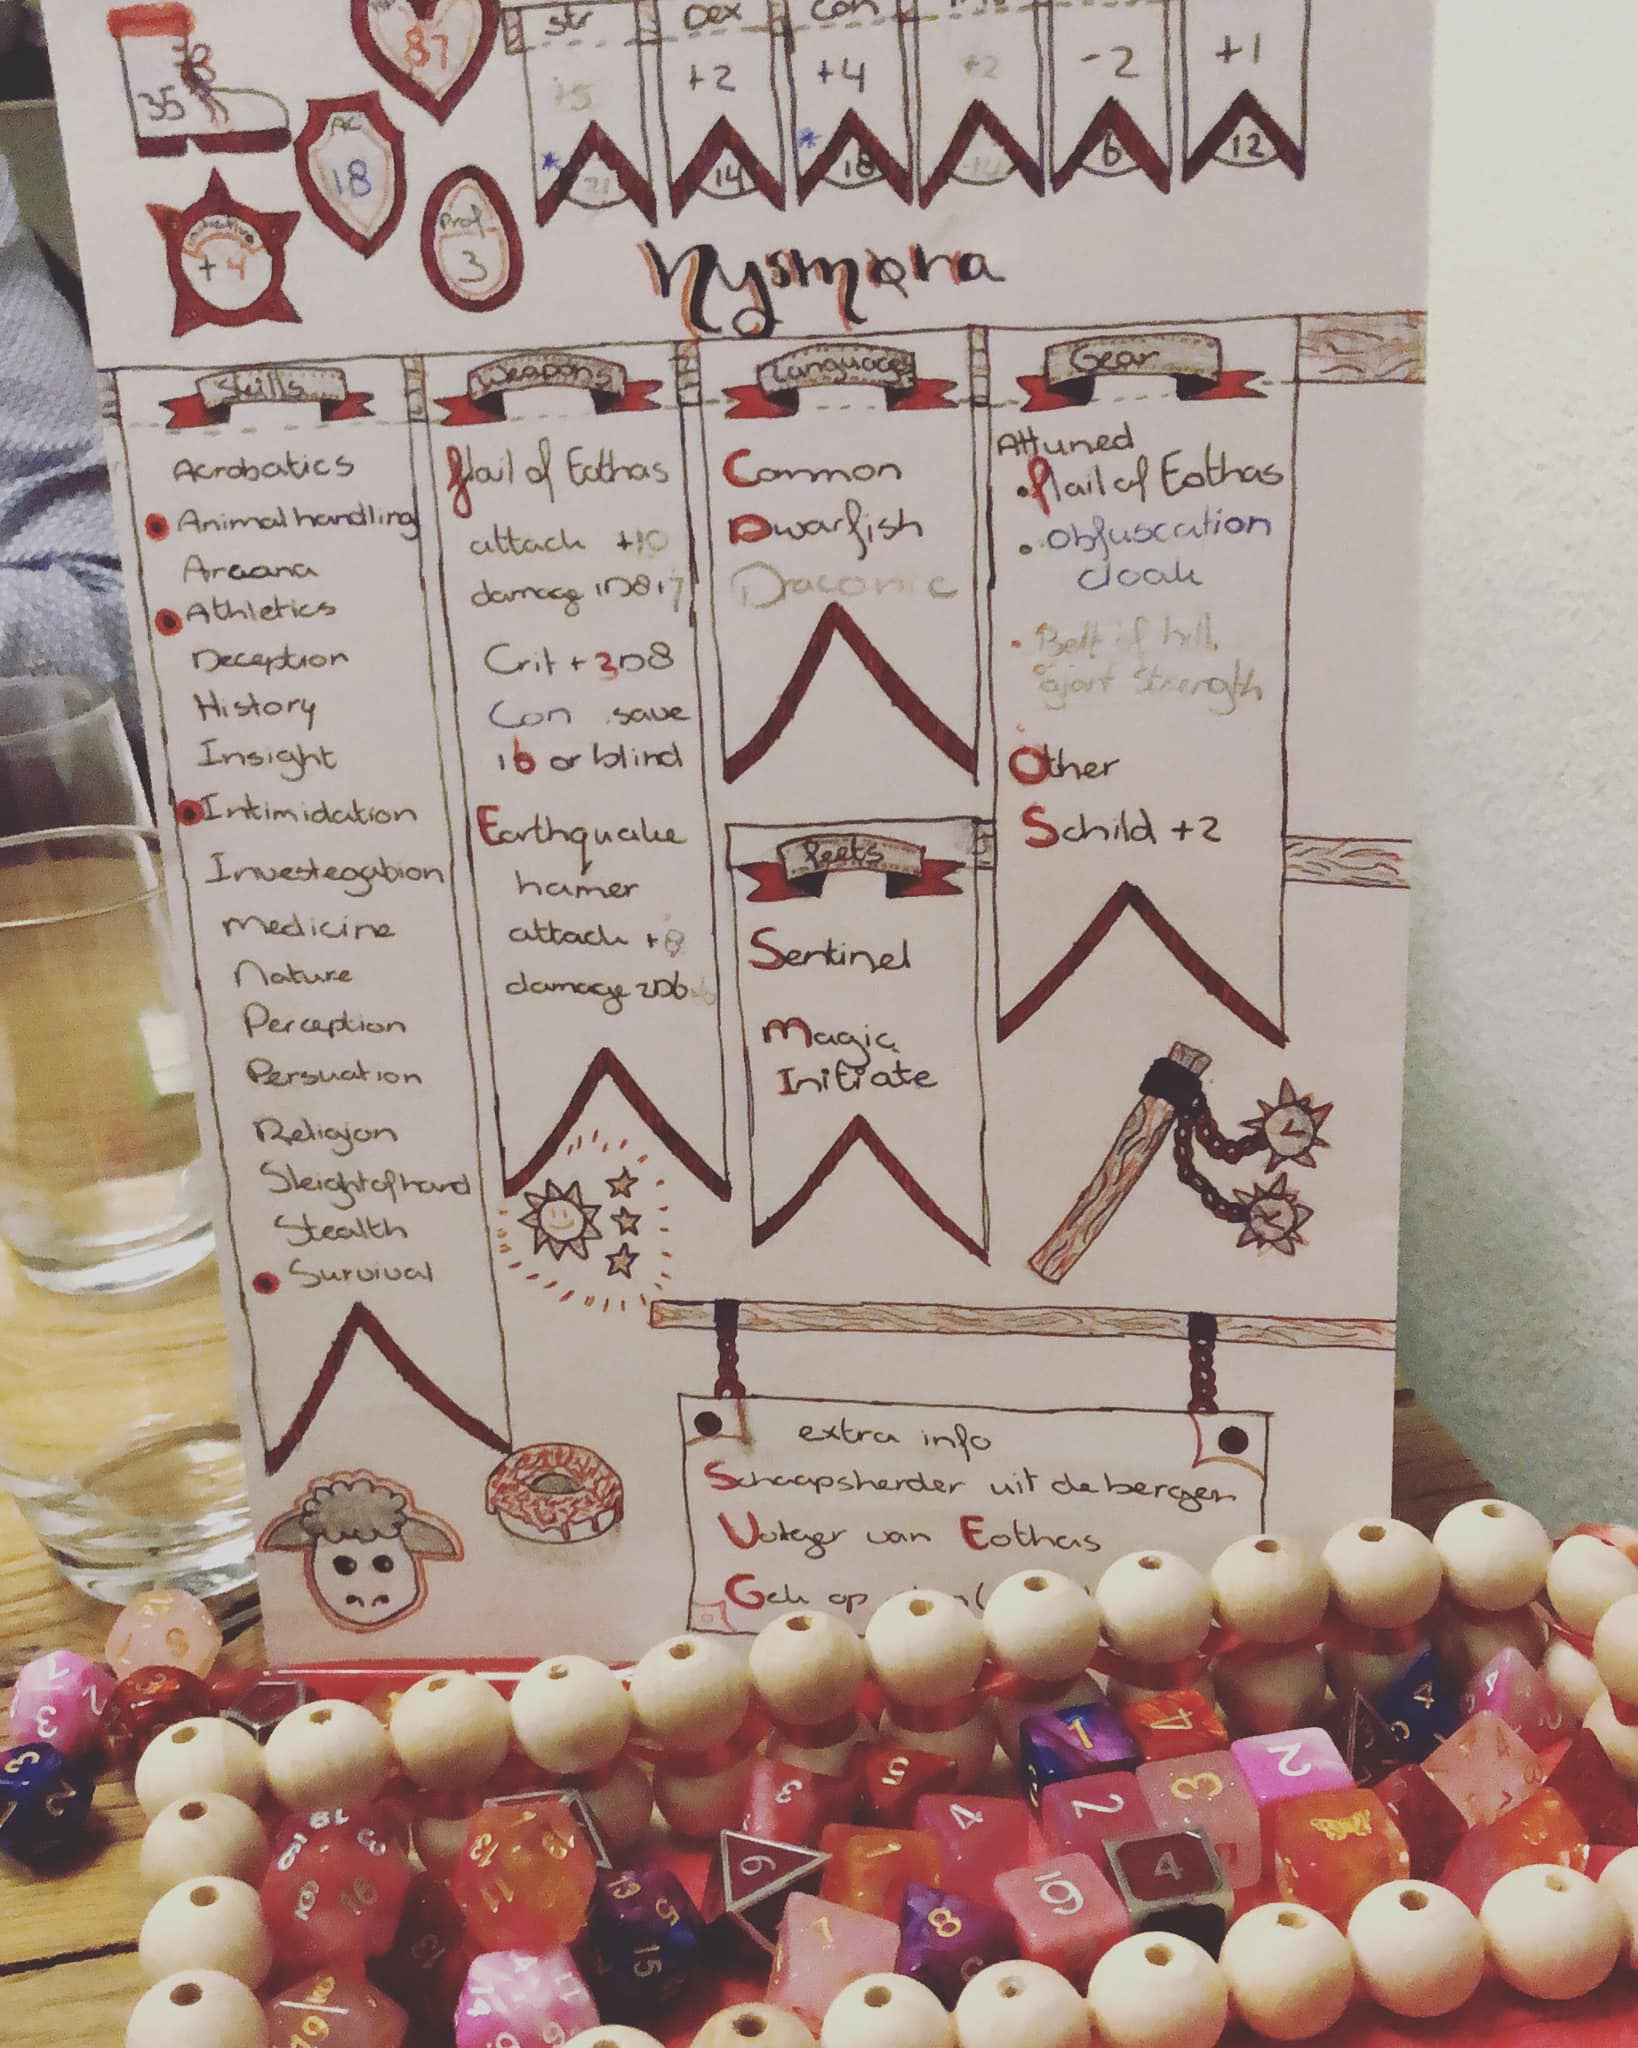 87
str
Dex
Con
+5
+2
+4
+2
-2
+1
35
AC
18
21
14
18
6
12
Initiative
+4
Prof
3
Nysmona
Skills
Acrobatics
Animal handling
Arcana
Athletics
Deception
History
Insight
Intimidation
Investegation
Medicine
Nature
Perception
Persuation
Religion
Sleight of hand
Stealth
Survival
Weapons
flail of Eothas
attack +10
damage 1D8+7
Crit + 2D8
Con save
16 or blind
Earthquake
hamer
attack +8
damage 2D6
Languages
Common
Dwarfish
Draconic
feets
Sentinel
Magic
Initiate
Gear
Attuned
• flail of Eothas
• obfuscation
cloak
• Belt of hill
giant strength
Other
Schild +2
extra info
Schaapsherder uit de bergen
Volger van Eothas
Gek op